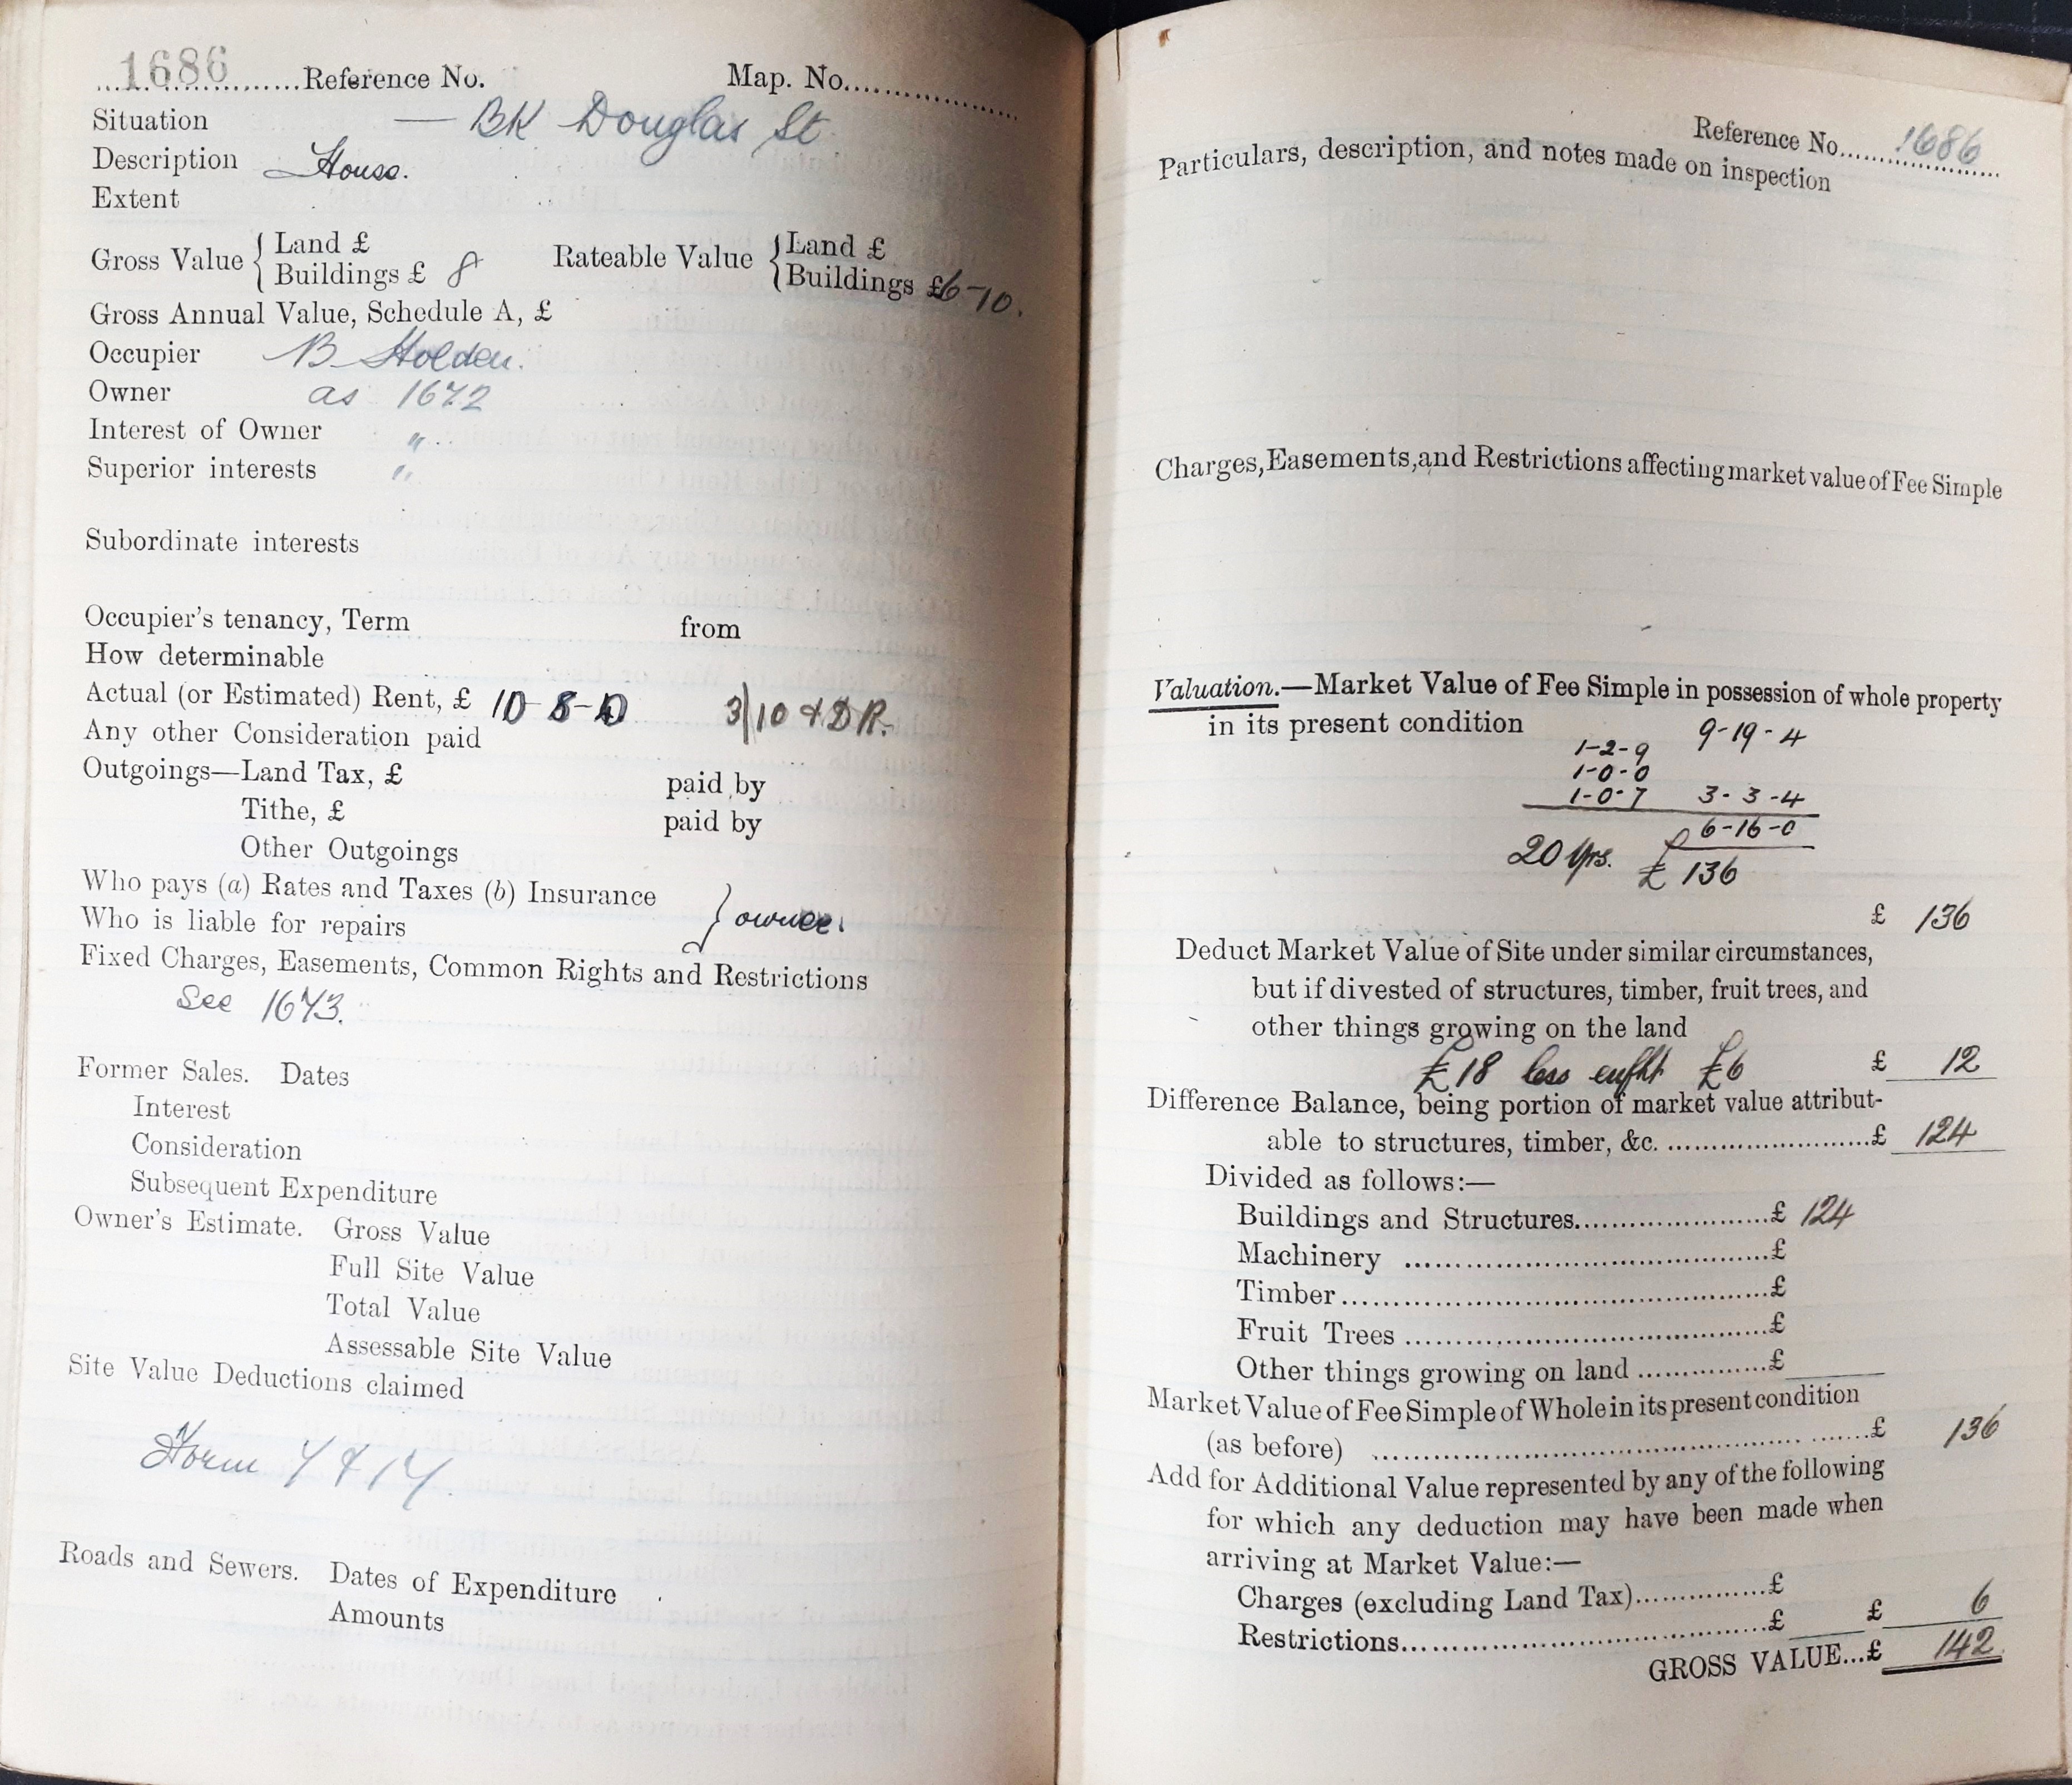 1686 Reference No. Map. No.
Situation — BK Douglas St
Description House.
Extent
Gross Value { Land £ Rateable Value { Land £
Buildings £ 8 Buildings £6-10.
Gross Annual Value, Schedule A, £
Occupier B Holden.
Owner as 1672
Interest of Owner "
Superior interests "
Subordinate interests
Occupier's tenancy, Term from
How determinable
Actual (or Estimated) Rent, £ 10 8-0 3/10 & DR.
Any other Consideration paid
Outgoings—Land Tax, £ paid by
Tithe, £ paid by
Other Outgoings
Who pays (a) Rates and Taxes (b) Insurance
Who is liable for repairs } owner.
Fixed Charges, Easements, Common Rights and Restrictions
See 1673.
Former Sales. Dates
Interest
Consideration
Subsequent Expenditure
Owner's Estimate. Gross Value
Full Site Value
Total Value
Assessable Site Value
Site Value Deductions claimed
Form 4 & 14.
Roads and Sewers. Dates of Expenditure
Amounts
Reference No. 1686
Particulars, description, and notes made on inspection
Charges, Easements, and Restrictions affecting market value of Fee Simple
Valuation.—Market Value of Fee Simple in possession of whole property
in its present condition 9-19-4
1-2-9
1-0-0
1-0-7 3-3-4
6-16-0
20 Yrs. £ 136
£ 136
Deduct Market Value of Site under similar circumstances,
but if divested of structures, timber, fruit trees, and
other things growing on the land
£18 less £6 £ 12
Difference Balance, being portion of market value attribut-
able to structures, timber, &c. £ 124
Divided as follows:—
Buildings and Structures £ 124
Machinery £
Timber £
Fruit Trees £
Other things growing on land £
Market Value of Fee Simple of Whole in its present condition
(as before) £ 136
Add for Additional Value represented by any of the following
for which any deduction may have been made when
arriving at Market Value:—
Charges (excluding Land Tax) £
Restrictions £ £ 6
GROSS VALUE...£ 142